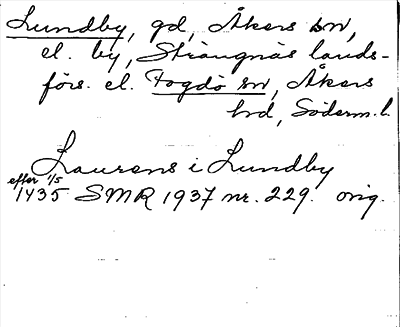 Lundby, gd, Åkers sn,
el. by, Strängnäs lands-
förs. el. Fogdö sn, Åkers
hd, Söderm. l.
Laurens i Lundby
efter 1/5
1435 SMR 1937 nr. 229. orig.